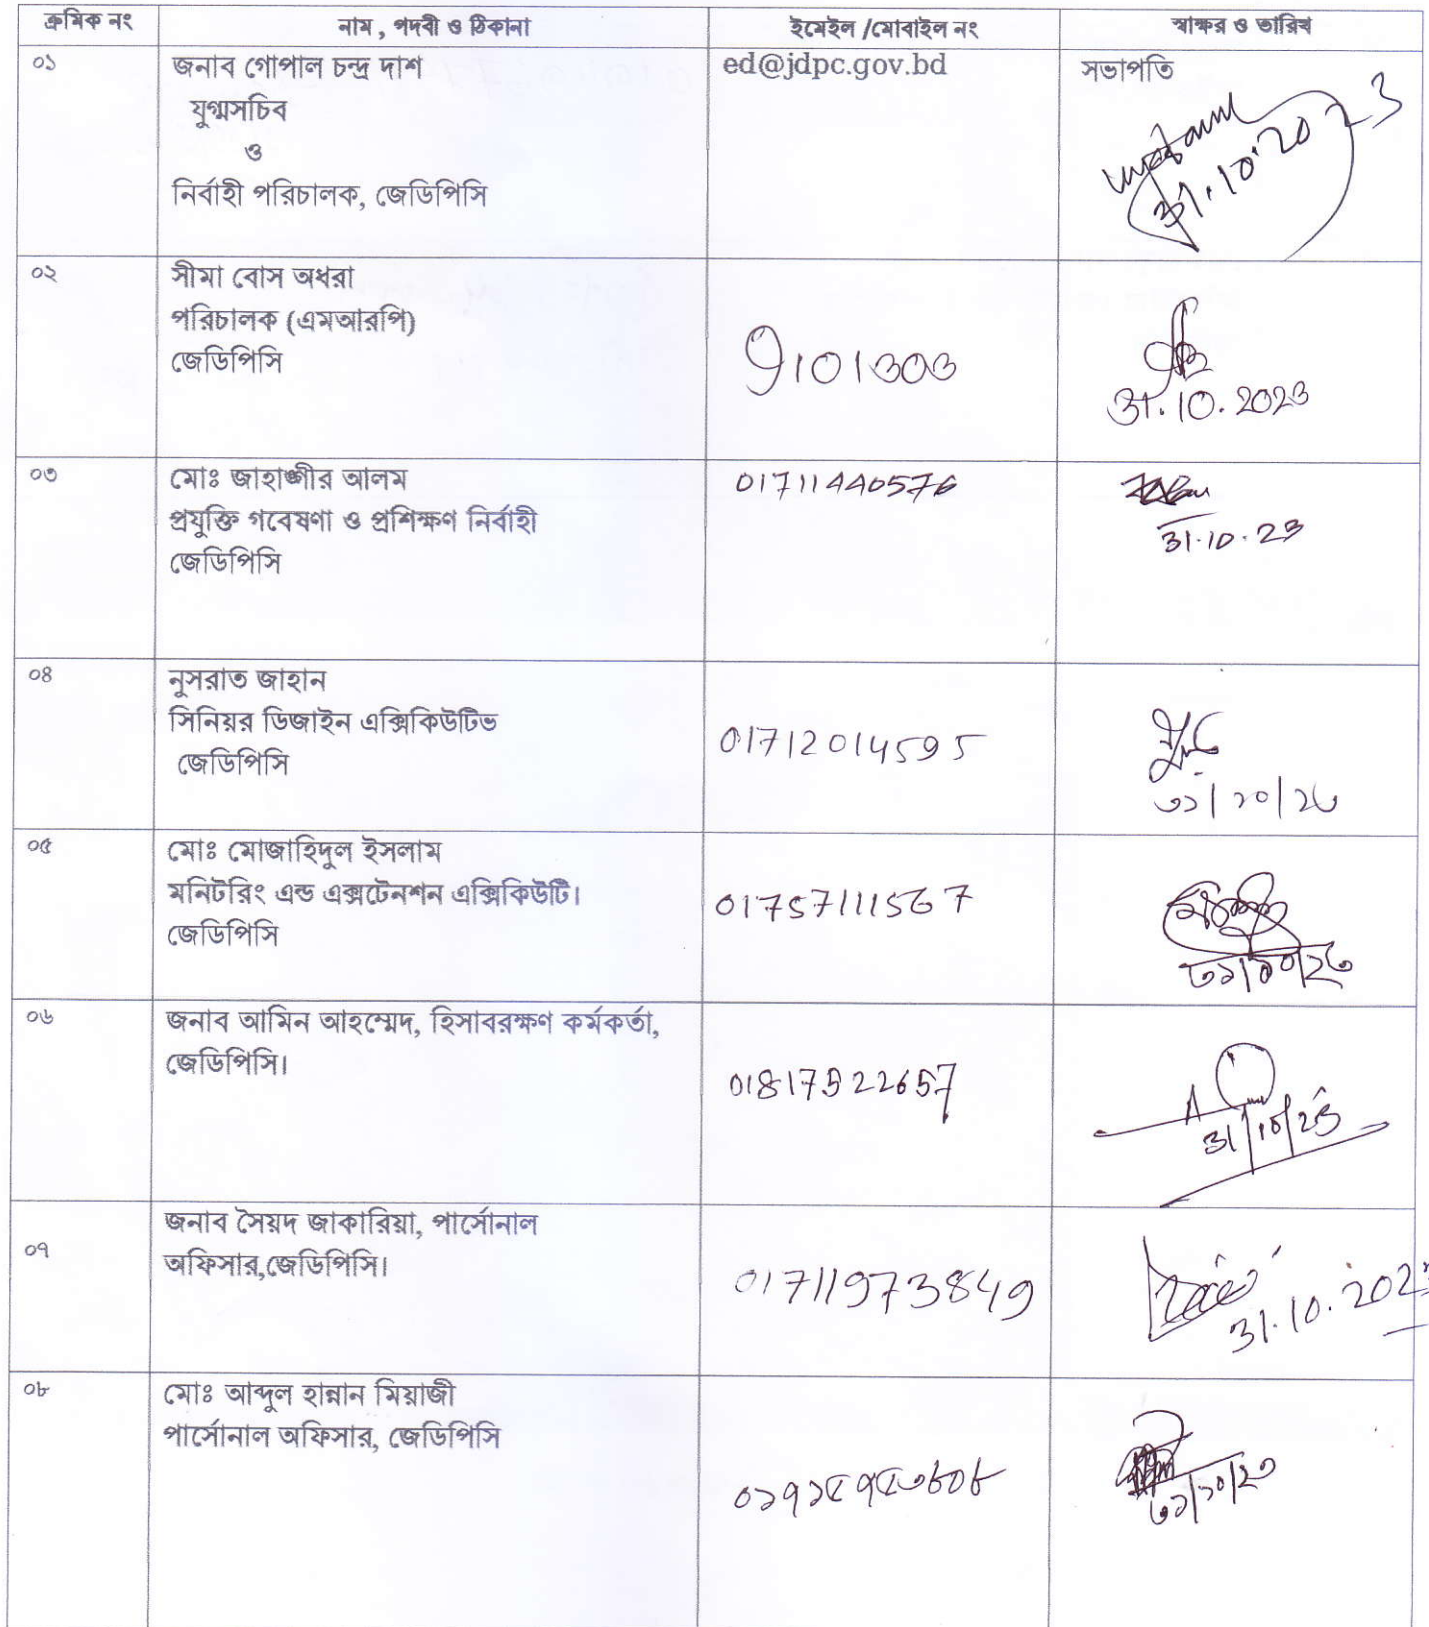 ক্রমিক নং নাম , পদবী ও ঠিকানা ইমেইল /মোবাইল নং স্বাক্ষর ও তারিখ
০১ জনাব গোপাল চন্দ্র দাশ ed@jdpc.gov.bd সভাপতি
যুগ্মসচিব
ও
নির্বাহী পরিচালক, জেডিপিসি
31.10.2023
০২ সীমা বোস অধরা
পরিচালক (এমআরপি)
জেডিপিসি 9101303
31.10.2023
০৩ মোঃ জাহাঙ্গীর আলম 01711440576
প্রযুক্তি গবেষণা ও প্রশিক্ষণ নির্বাহী 31.10.23
জেডিপিসি
০৪ নুসরাত জাহান
সিনিয়র ডিজাইন এক্সিকিউটিভ
জেডিপিসি 01712014595
৩১/১০/২৩
০৫ মোঃ মোজাহিদুল ইসলাম
মনিটরিং এন্ড এক্সটেনশন এক্সিকিউটি। 01757111567
জেডিপিসি
৩১/১০/২৩
০৬ জনাব আমিন আহম্মেদ, হিসাবরক্ষণ কর্মকর্তা,
জেডিপিসি। 01817522657
31/10/23
জনাব সৈয়দ জাকারিয়া, পার্সোনাল
০৭ অফিসার,জেডিপিসি। 01711973849
31.10.2023
০৮ মোঃ আব্দুল হান্নান মিয়াজী
পার্সোনাল অফিসার, জেডিপিসি
০১৭১৫৭৫৩৮০৮ ৩১/১০/২৩